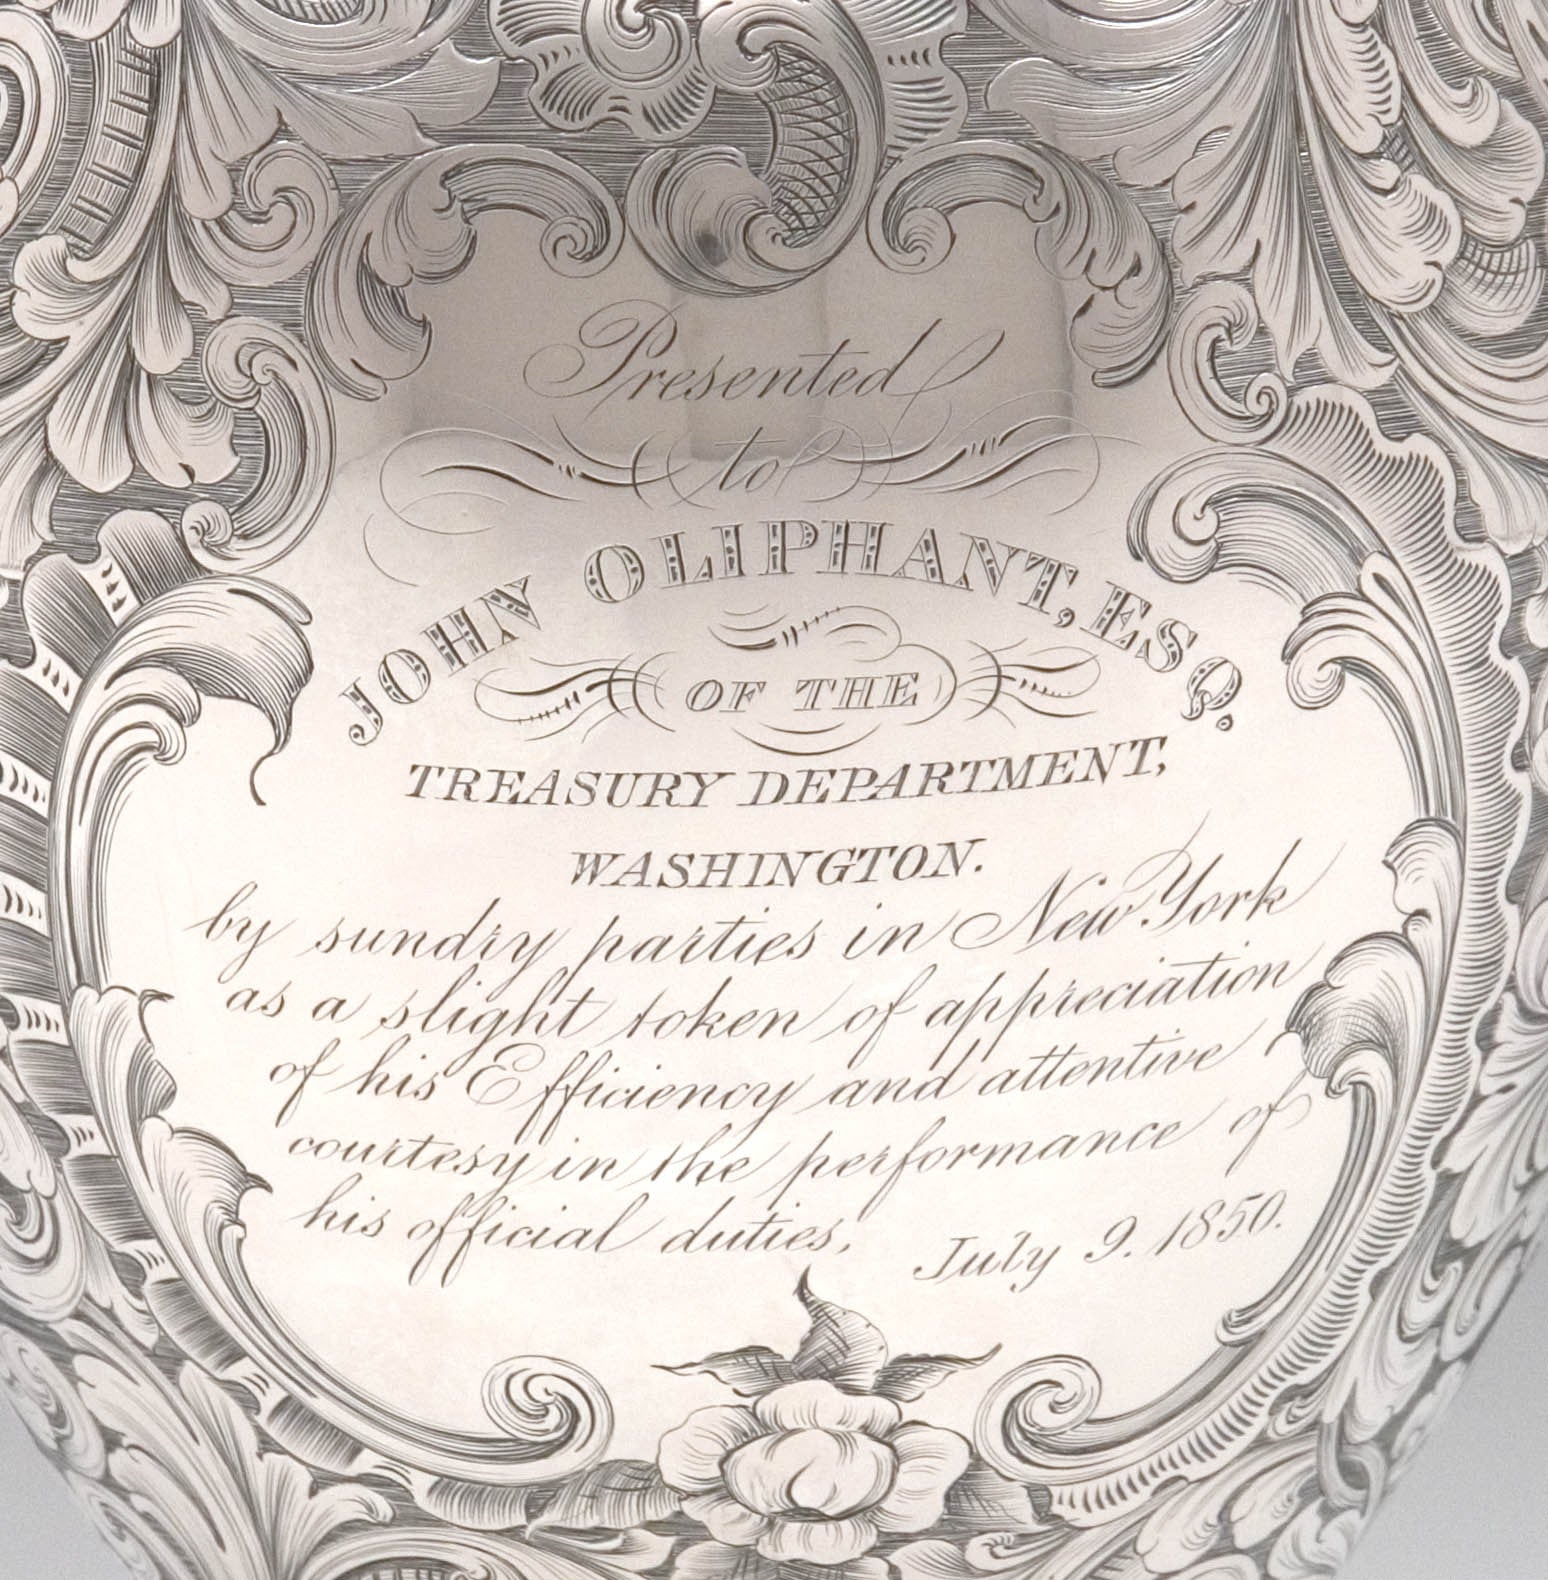 Presented
to
JOHN OLIPHANT, ESQ.
OF THE
TREASURY DEPARTMENT,
WASHINGTON.
by sundry parties in New York
as a slight token of appreciation
of his Efficiency and attentive
courtesy in the performance of
his official duties,
July 9. 1850.